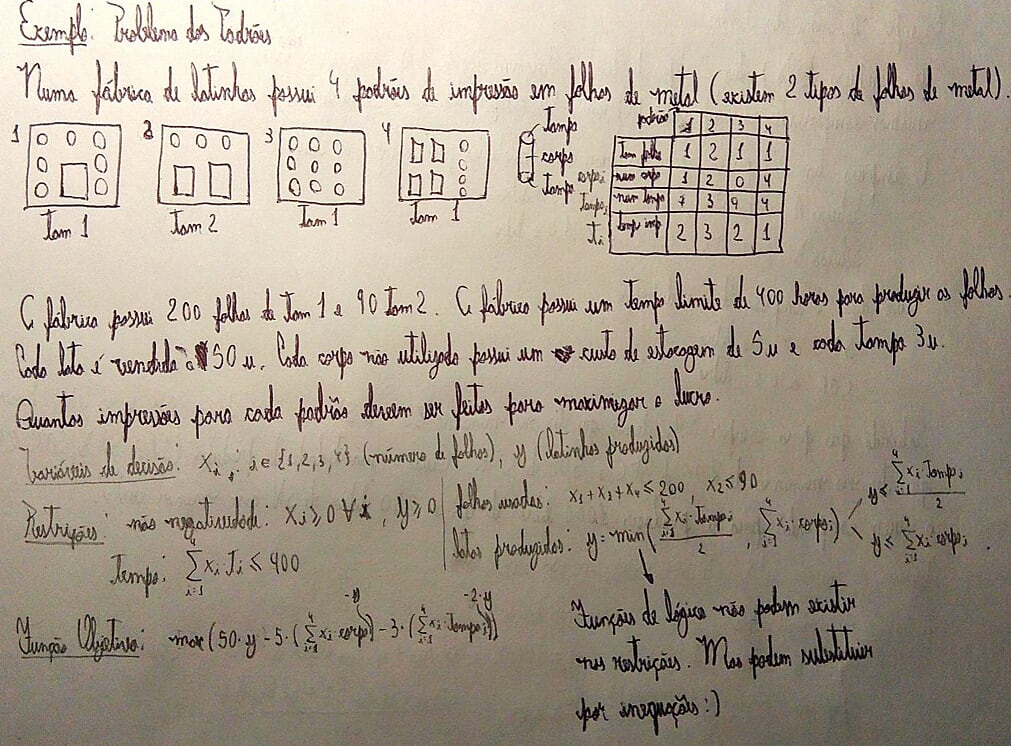 Exemplo: Problema dos Padrões
Numa fábrica de latinhas possui 4 padrões de impressão em folhas de metal (existem 2 tipos de folhas de metal).
1 2 3 4
Tam 1 Tam 2 Tam 1 Tam 1
Tampa
corpo
Tampa
padrão 1 2 3 4
Tam folha 1 2 1 1
corpo_i num corpo 1 2 0 4
Tampa_i num tampa 7 3 9 4
T_i temp imp 2 3 2 1
A fábrica possui 200 folhas de Tam 1 e 90 Tam 2. A fábrica possui um tempo limite de 400 horas para produzir as folhas.
Cada lata é vendida à 50 u. Cada corpo não utilizado possui um custo de estocagem de 5u e cada tampa 3u.
Quantas impressões para cada padrão devem ser feitas para maximizar o lucro.
Variáveis de decisão: X_i, i ∈ {1,2,3,4} (número de folhas), y (latinhas produzidas)
Restrições: não negatividade: X_i ≥ 0 ∀ i, y ≥ 0
Tempo: ∑_{i=1}^{4} x_i · T_i ≤ 400
folhas usadas: x_1 + x_3 + x_4 ≤ 200, x_2 ≤ 90
latas produzidas: y = min(∑_{i=1}^{4} x_i · Tampa_i / 2, ∑_{i=1}^{4} x_i · corpo_i)
y ≤ ∑_{i=1}^{4} x_i · Tampa_i / 2
y ≤ ∑_{i=1}^{4} x_i · corpo_i.
Função Objetivo: max (50 · y - 5 · (∑_{i=1}^{4} x_i corpo_i -y) - 3 · (∑_{i=1}^{4} x_i · tampa_i -2·y))
Funções de lógica não podem existir
nas restrições. Mas podem substituir
por inequações :)